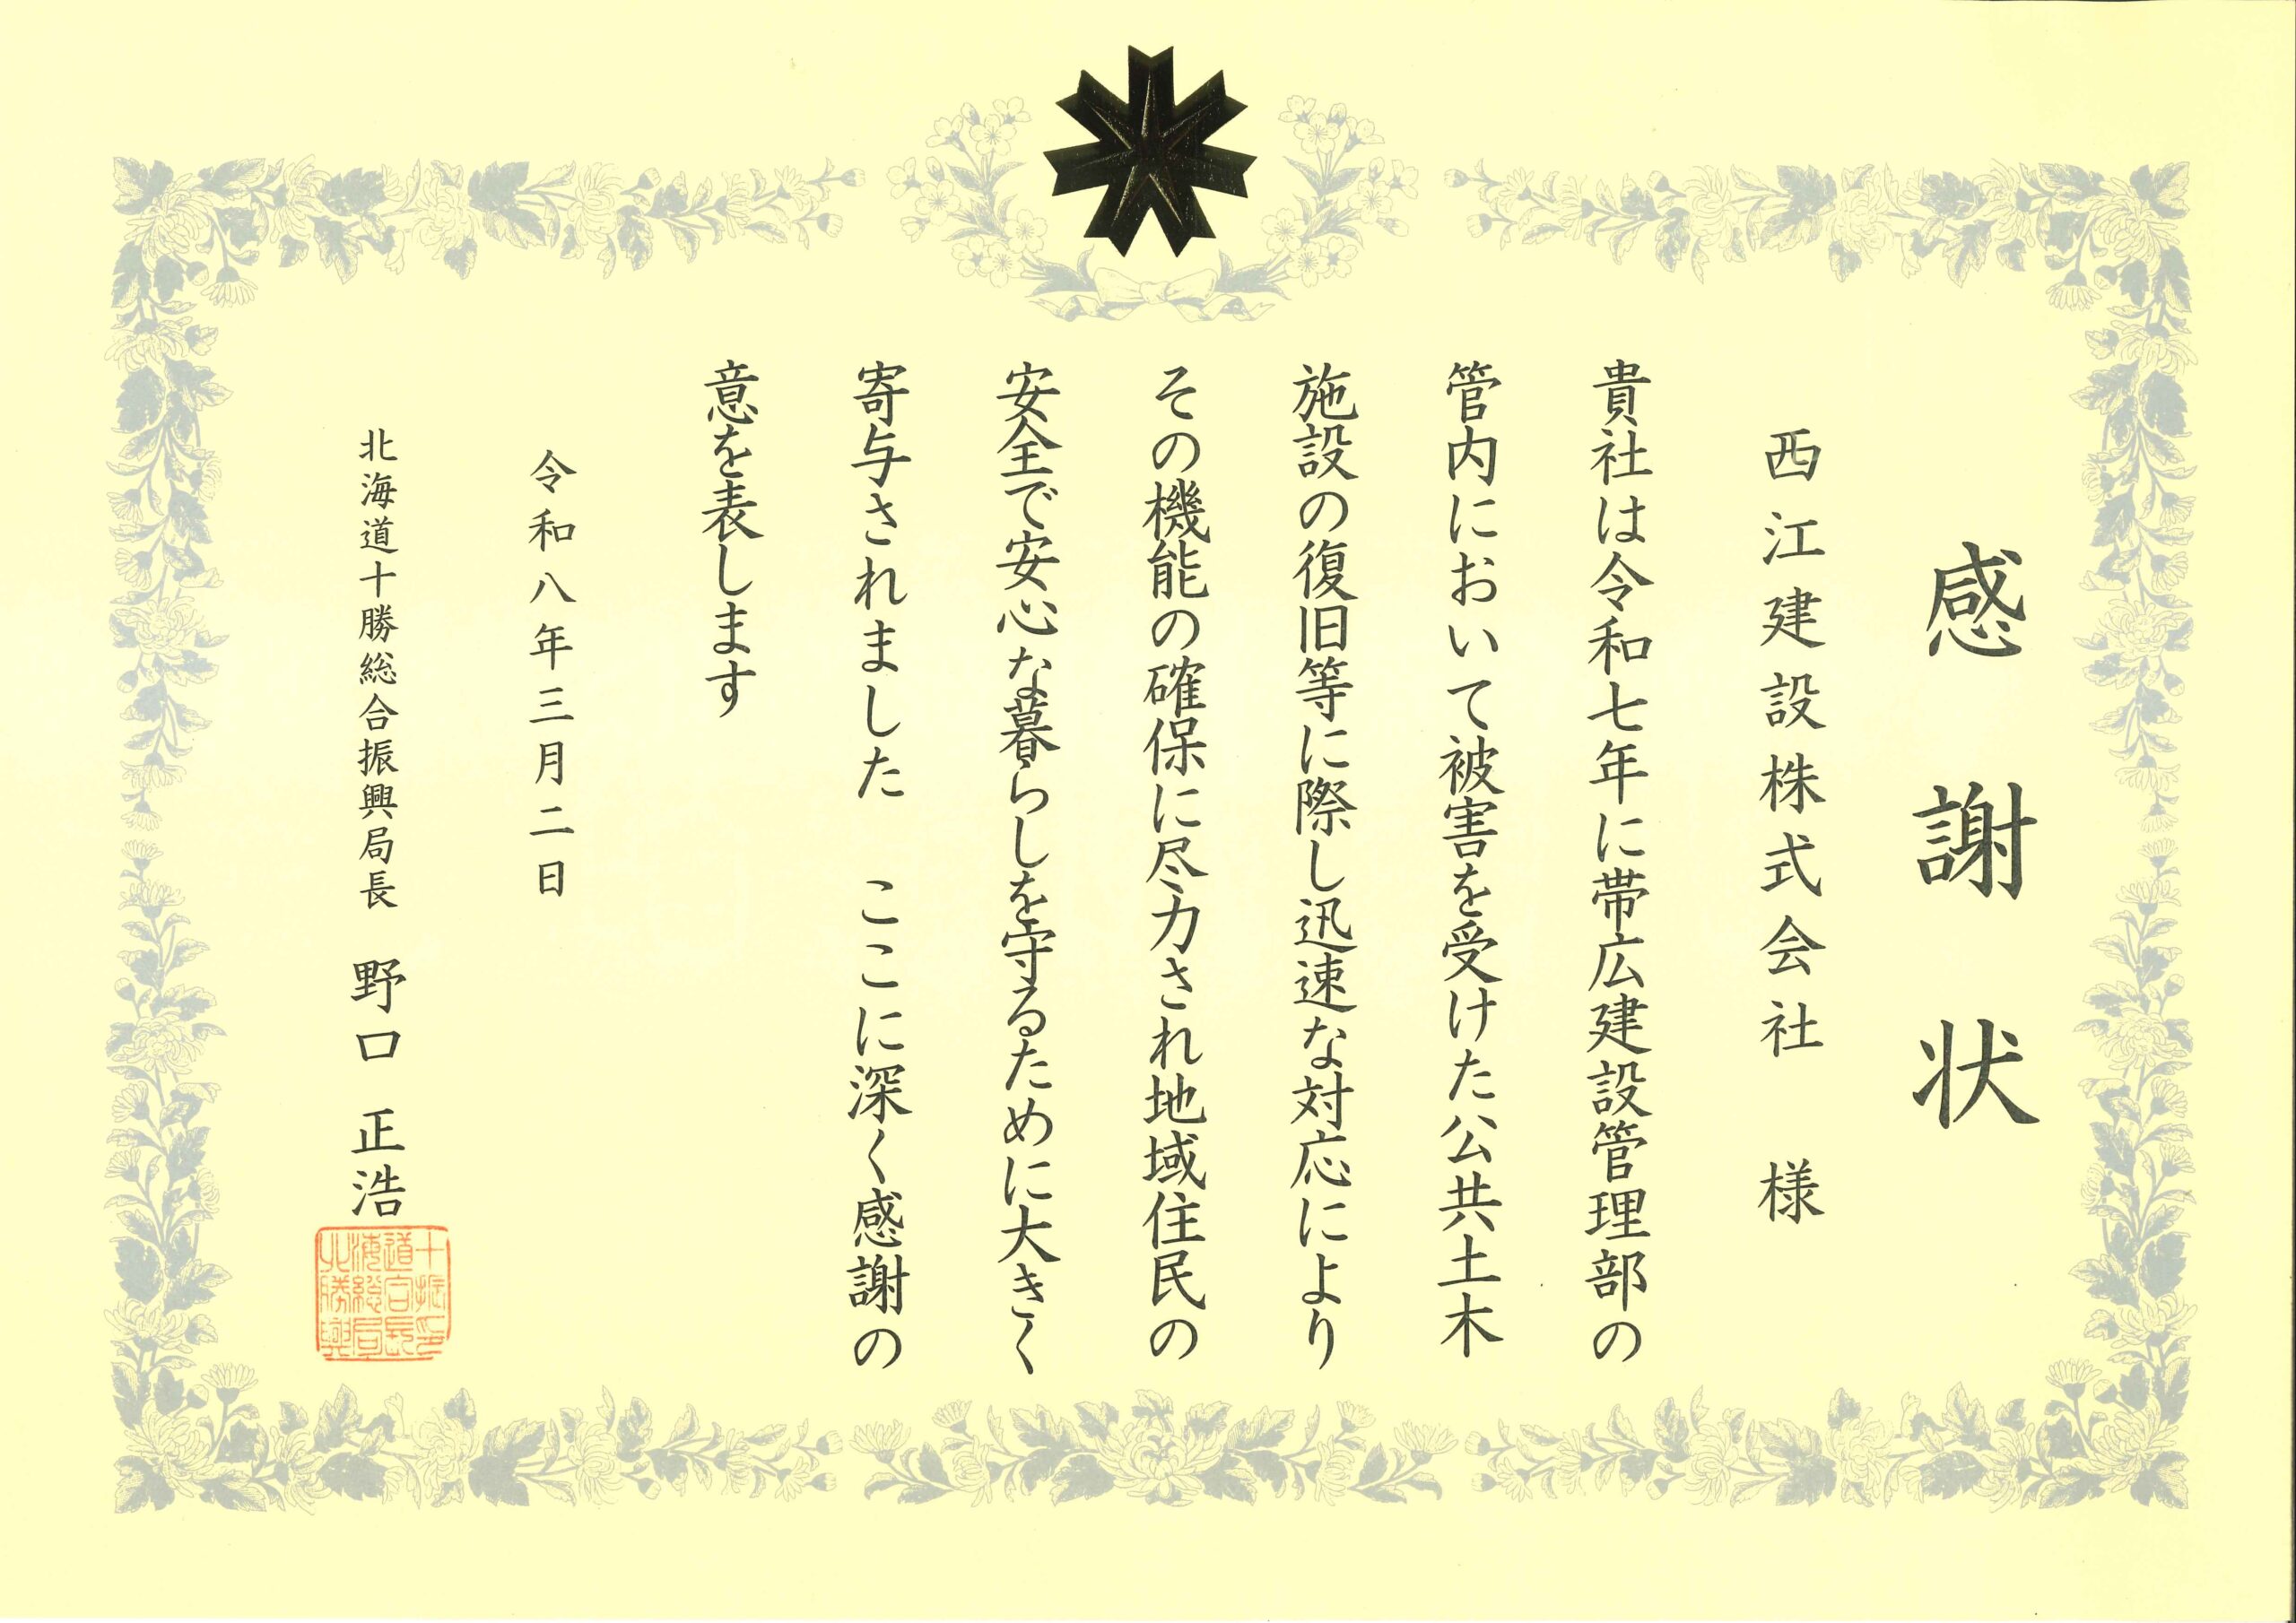 感謝状
西江建設株式会社 様
貴社は令和七年に帯広建設管理部の
管内において被害を受けた公共土木
施設の復旧等に際し迅速な対応により
その機能の確保に尽力され地域住民の
安全で安心な暮らしを守るために大きく
寄与されました ここに深く感謝の
意を表します
令和八年三月二日
北海道十勝総合振興局長 野口 正浩